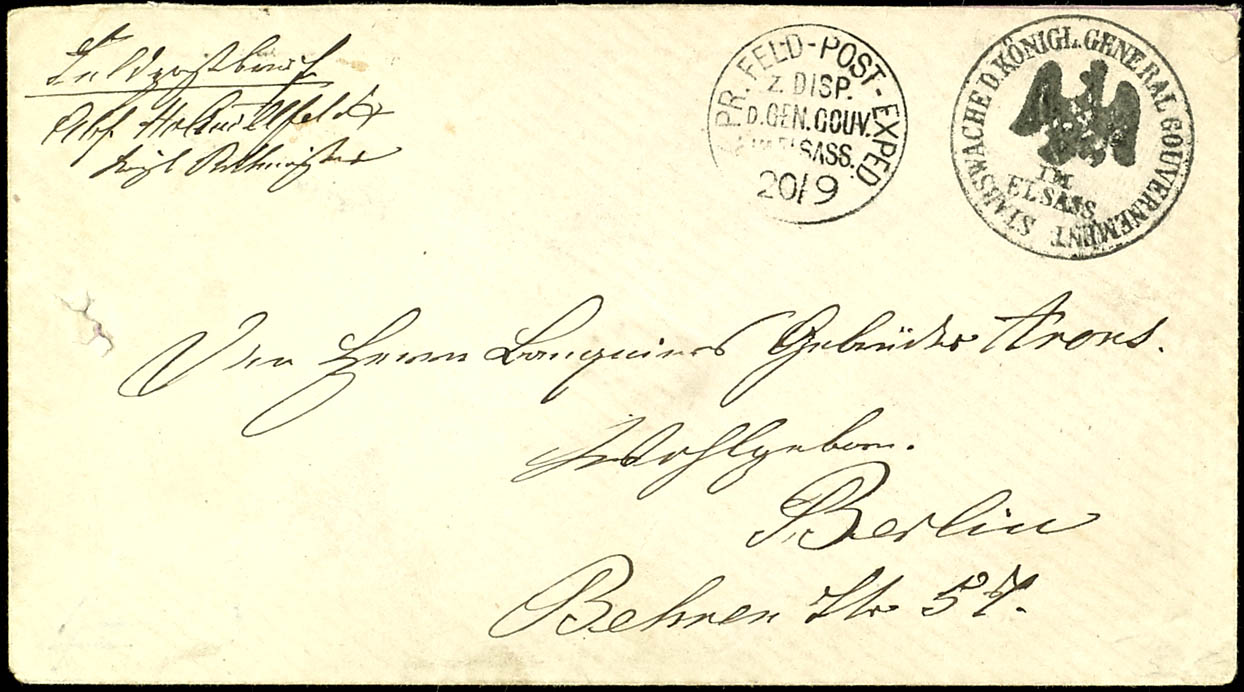 Feldpostbrief
Abs.
Kgl. Rittmeister
K. PR. FELD-POST-EXPED.
Z. DISP.
D. GEN. GOUV.
IM ELSASS.
20/9
STABSWACHE D. KÖNIGL. GENERAL GOUVERNEMENT
IM
ELSASS
Den Herrn Banquiers Gebrüder Arons.
Wohlgeboren.
Berlin
Behren Str 57.